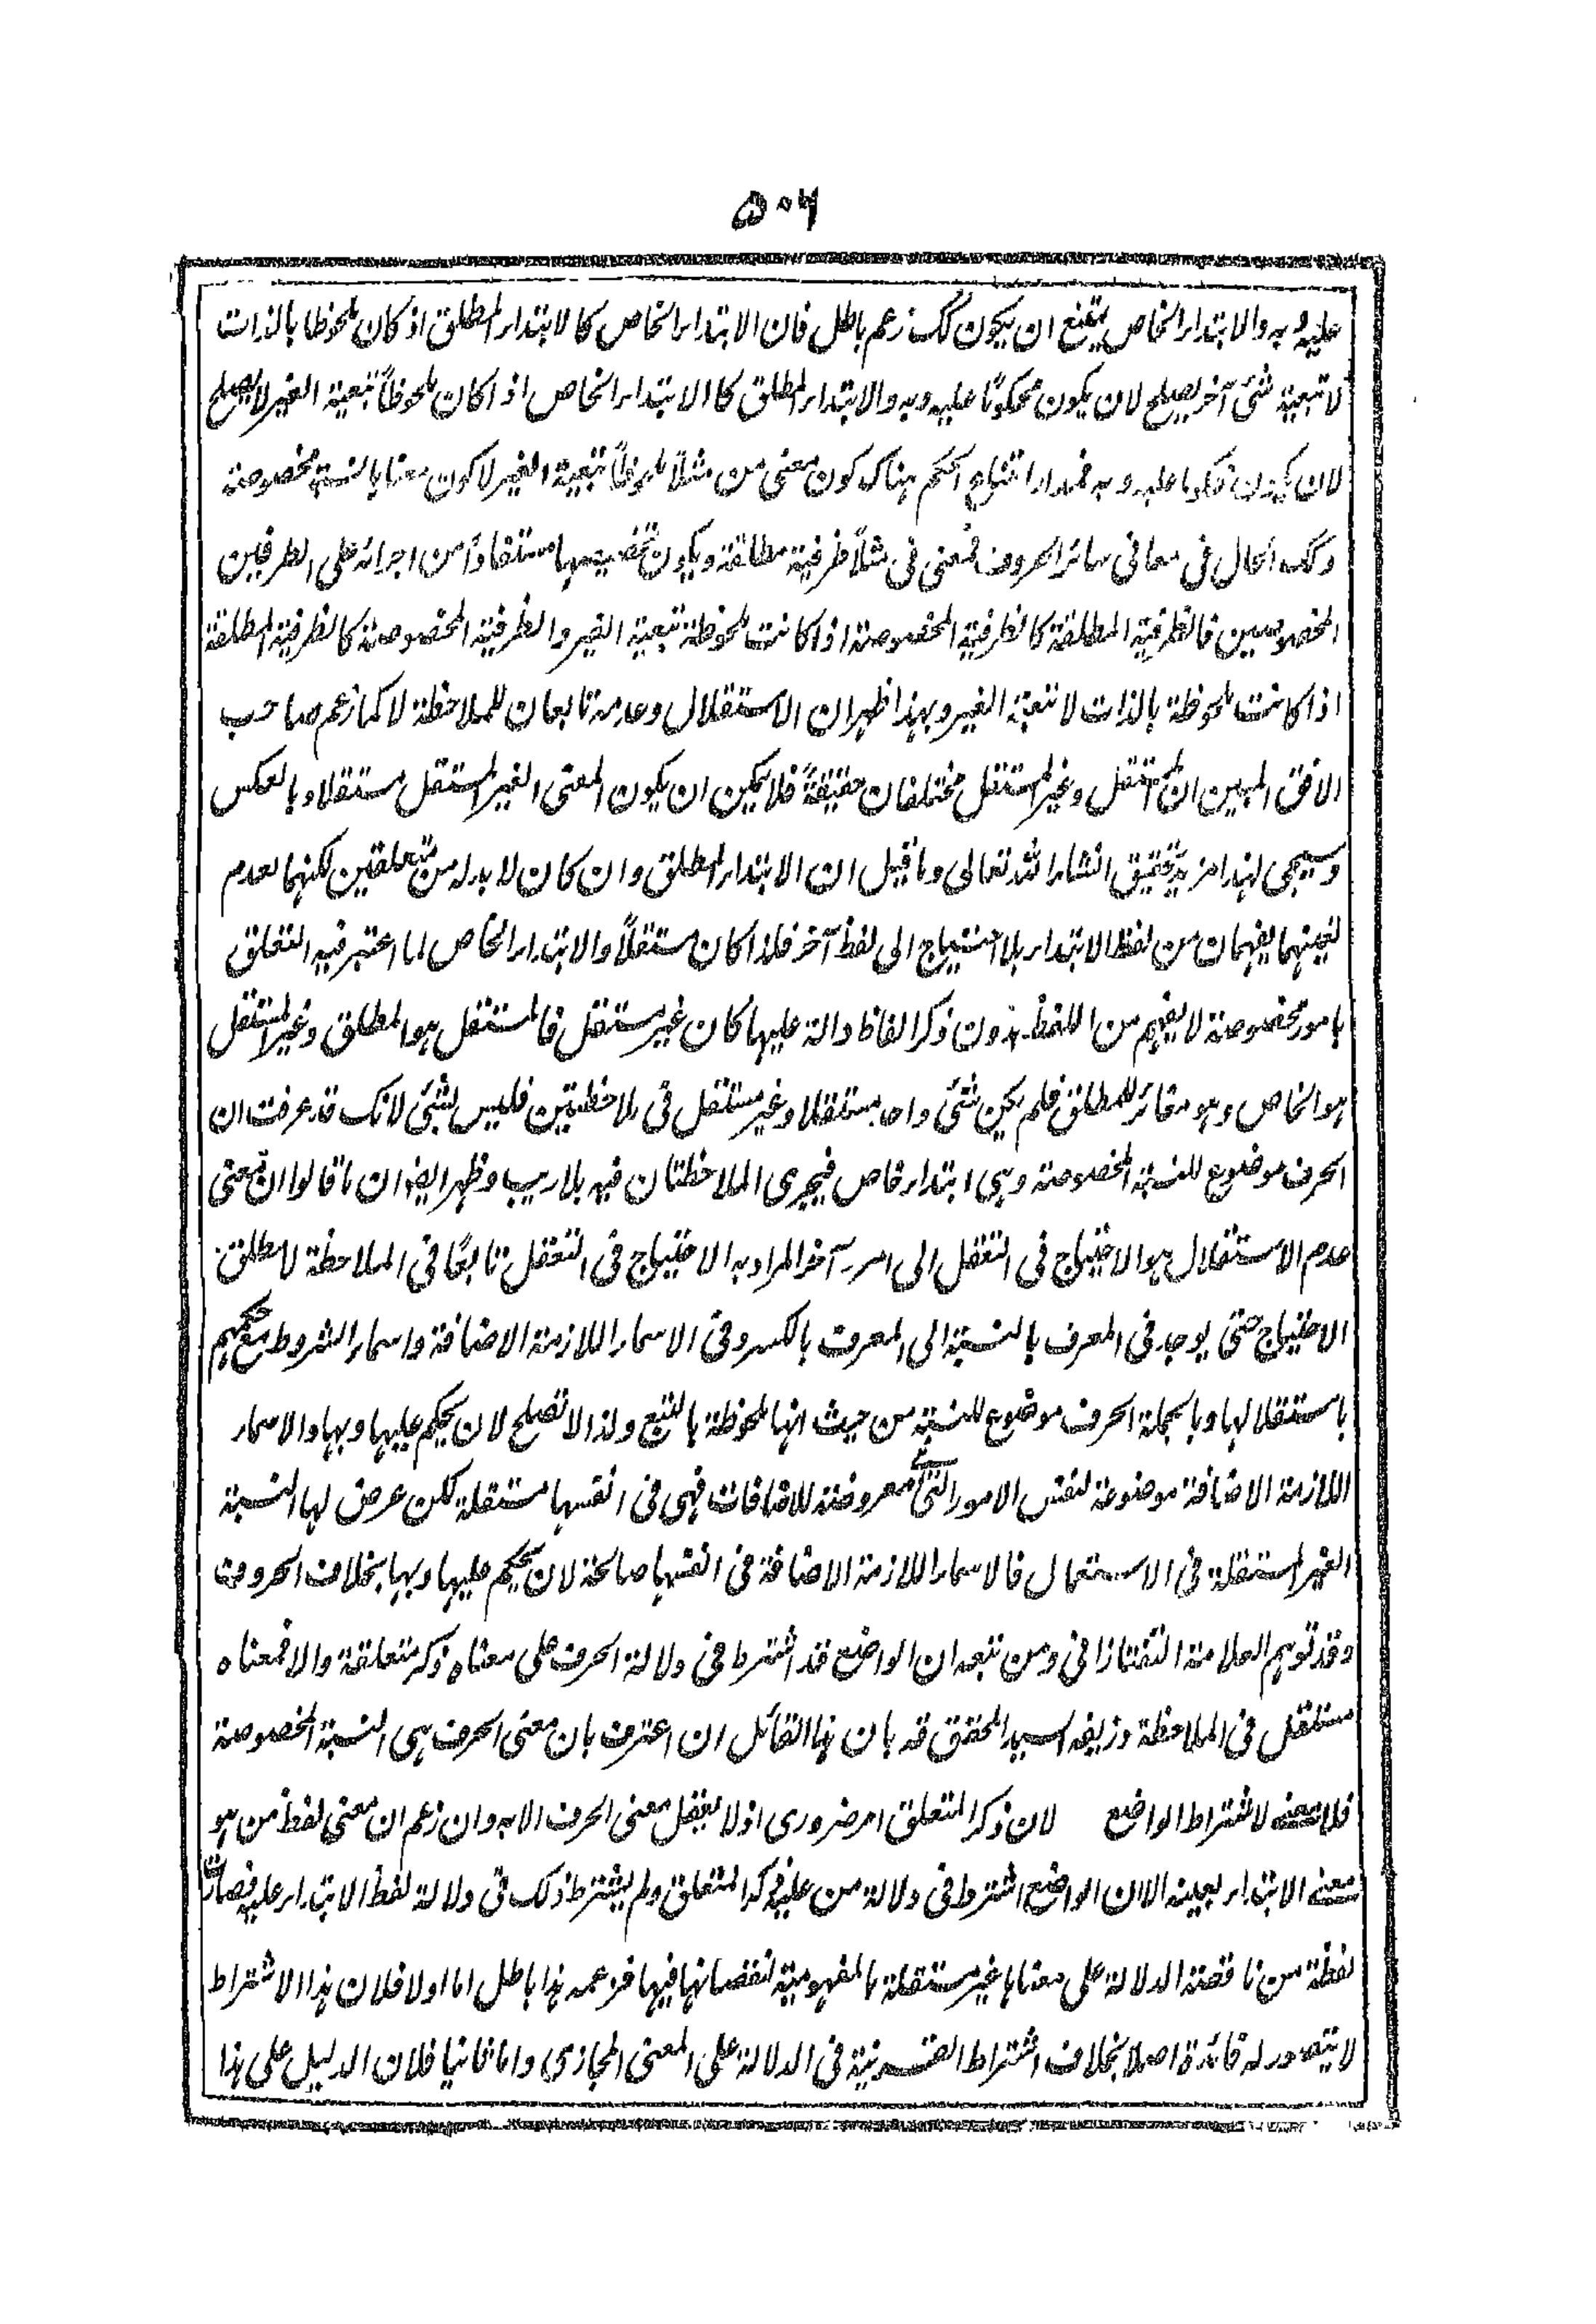 ٥٠٦
عليه وبه والابتداء الخاص يمتنع ان يكون كك زعم باطل فان الابتداء الخاص كالابتداء المطلق اذ كان ملحوظا بالذات
لا تبعية شئ آخر يصلح لان يكون محكومًا عليه وبه والابتداء المطلق كالابتداء الخاص اذا كان ملحوظًا تبعية الغير لا يصلح
لان يكون محكوما عليه وبه فمدار امتناع الحكم هناك كون معنى من مثلًا ملحوظًا تبعية الغير لا كون معناها نسبة مخصوصة
وكك الحال فى معانى سائر الحروف فمعنى فى مثلًا ظرفية مطلقة ويكون تخصيصها مستفادًا من اجرائه على الطرفين
المخصوصين فالظرفية المطلقة كالظرفية المخصوصة اذا كانت ملحوظة تبعية الغير والظرفية المخصوصة كالظرفية المطلقة
اذا كانت ملحوظة بالذات لا تبعية الغير وبهذا ظهر ان الاستقلال وعدمه تابعان للملاحظة لا كما زعم صاحب
الافق المبين ان المستقل وغير المستقل مختلفان حقيقةً فلا يمكن ان يكون المعنى الغير المستقل مستقلا وبالعكس
وسيجئ لهذا مزيد تحقيق انشاء الله تعالى وما قيل ان الابتداء المطلق وان كان لا بد له من متعلقين لكنهما لعدم
تعينهما يفهمان من لفظ الابتداء بلا احتياج الى لفظ آخر فلذا كان مستقلًا والابتداء الخاص لما اعتبر فيه التعلق
بامور مخصوصة لا يفهم من اللفظ بدون ذكر الفاظ دالة عليها كان غير مستقل فالمستقل هو المطلق وغير المستقل
هو الخاص وهو مغائر للمطلق فلم يكن شئ واحد مستقلا وغير مستقل فى ملاحظتين فليس بشئ لانك قد عرفت ان
الحرف موضوع للنسبة المخصوصة وهى ابتداء خاص فيجرى الملاحظتان فيه بلا ريب وظهر ايضا ان ما قالوا ان معنى
عدم الاستقلال هو الاحتياج فى التعقل الى امر آخر المراد به الاحتياج فى التعقل تابعًا فى الملاحظة لا مطلق
الاحتياج حتى يوجد فى المعرف بالنسبة الى المعرف بالكسر وفى الاسماء اللازمة الاضافة واسماء الشروط مع حكمهم
باستقلالها وبالجملة الحرف موضوع للنسبة من حيث انها ملحوظة بالتبع ولذا لا تصلح لان يحكم عليها وبها والاسماء
اللازمة الاضافة موضوعة لنفس الامور التى هى معروضة للاضافات فهى فى انفسها مستقلة لكن عرض لها النسبة
الغير المستقلة فى الاستعمال فالاسماء اللازمة الاضافة فى انفسها صالحة لان يحكم عليها وبها بخلاف الحروف
وقد توهم العلامة التفتازانى ومن تبعه ان الواضع قد اشترط فى دلالة الحرف على معناه ذكر متعلقة والا فمعناه
مستقل فى الملاحظة وزيفه السيد المحقق قد بان هذا القائل ان اعترف بان معنى الحرف هى النسبة المخصوصة
فلا معنى لاشتراط الواضع لان ذكر المتعلق امر ضرورى اذ لا يعقل معنى الحرف الا به وان زعم ان معنى لفظ من هو
معنى الابتداء بعينه الا ان الواضع اشترط فى دلالة من عليه ذكر المتعلق ولم يشترط ذلك فى دلالة لفظ الابتداء عليه فصارت
لفظة من ناقصة الدلالة على معناها غير مستقلة بالمفهومية لنقصانها فيها فزعمه هذا باطل اما اولا فلان هذا الاشتراط
لا يتصور له فائدة اصلا بخلاف اشتراط القرينة فى الدلالة على المعنى المجازى واما ثانيا فلان الدليل على هذا